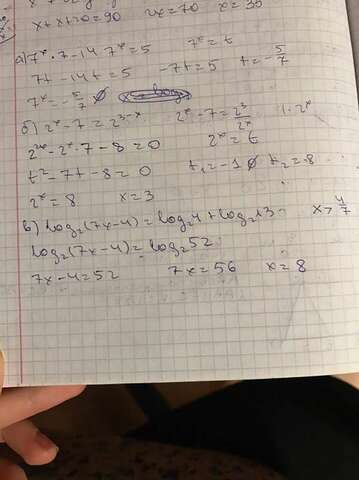 x+x+20=90 2x=70 x=35
а) 7ˣ·7-14·7ˣ=5 7ˣ=t
7t-14t=5 -7t=5 t=-5/7
7ˣ=-5/7 ∅
б) 2ˣ-7=2³⁻ˣ 2ˣ-7=2³/2ˣ |·2ˣ
2²ˣ-2ˣ·7-8=0 2ˣ=t
t²-7t-8=0 t₁=-1 ∅ t₂=8
2ˣ=8 x=3
в) log₂(7x-4)=log₂4+log₂13 x>4/7
log₂(7x-4)=log₂52
7x-4=52 7x=56 x=8